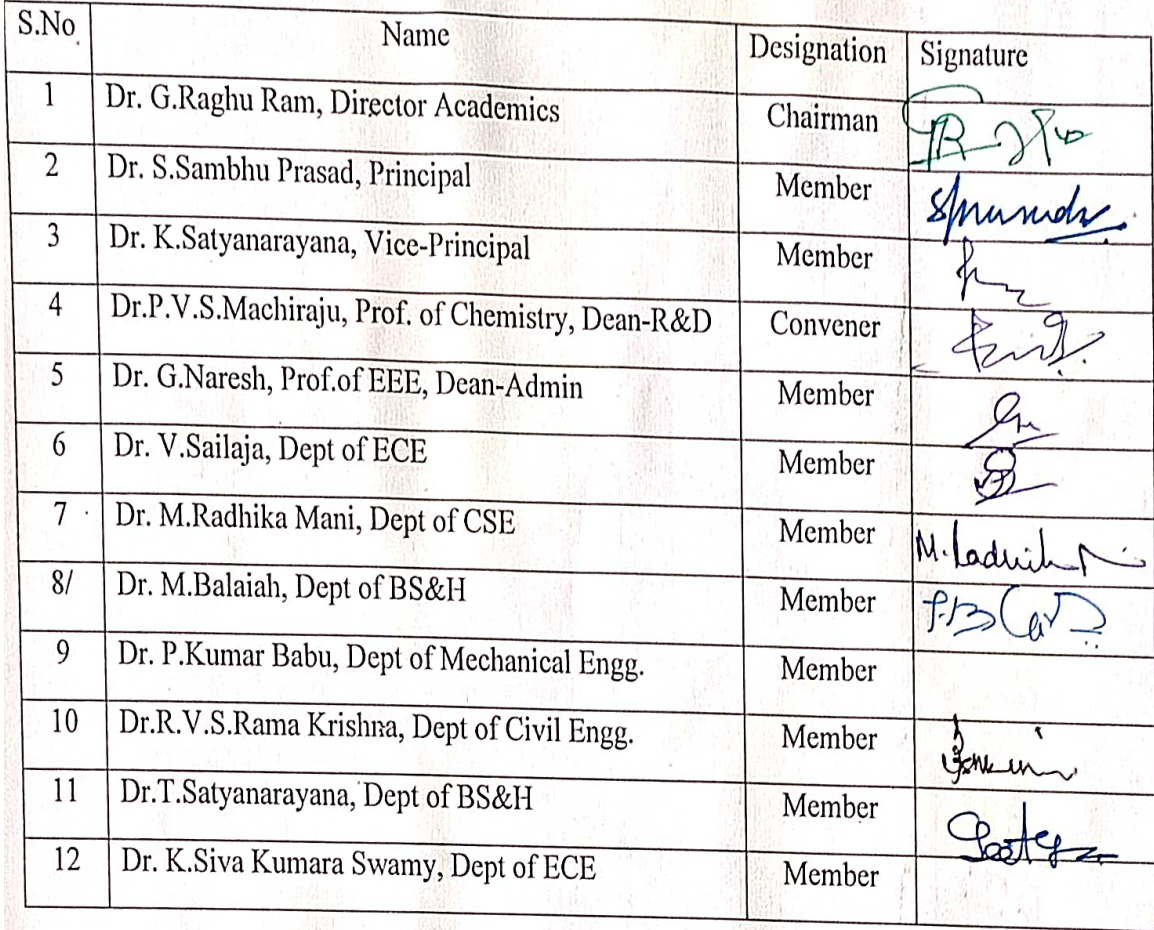 S.No. Name Designation Signature
1 Dr. G.Raghu Ram, Director Academics Chairman
2 Dr. S.Sambhu Prasad, Principal Member
3 Dr. K.Satyanarayana, Vice-Principal Member
4 Dr.P.V.S.Machiraju, Prof. of Chemistry, Dean-R&D Convener
5 Dr. G.Naresh, Prof.of EEE, Dean-Admin Member
6 Dr. V.Sailaja, Dept of ECE Member
7 Dr. M.Radhika Mani, Dept of CSE Member
8/ Dr. M.Balaiah, Dept of BS&H Member
9 Dr. P.Kumar Babu, Dept of Mechanical Engg. Member
10 Dr.R.V.S.Rama Krishna, Dept of Civil Engg. Member
11 Dr.T.Satyanarayana, Dept of BS&H Member
12 Dr. K.Siva Kumara Swamy, Dept of ECE Member